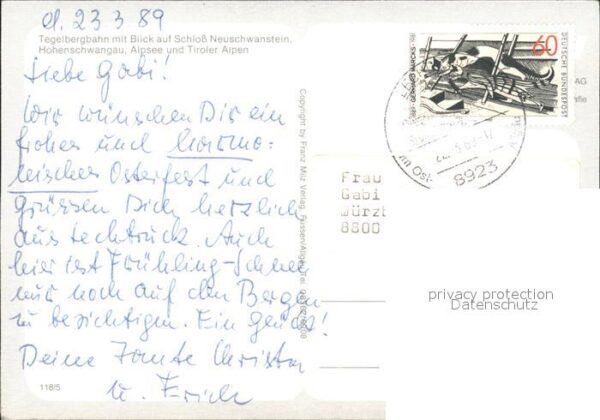 d. 23 3 89
Tegelbergbahn mit Blick auf Schloß Neuschwanstein,
Hohenschwangau, Alpsee und Tiroler Alpen
Liebe Gabi!
Wir wünschen Dir ein
frohes und harmo-
nisches Osterfest und
grüssen Dich herzlich
aus Lechbruck. Auch
hier ist Frühling - Schnee
nur noch auf den Bergen
zu besichtigen. Ein Genuß!
Deine Tante Christa
u. Erich
118/5
Copyright by Franz Milz Verlag, Füssen/Allgäu Tel.
60
DEUTSCHE BUNDESPOST
GERHARD MARCKS
8923
AG
Frau
Gabi
Würzb
8800
privacy protection
Datenschutz